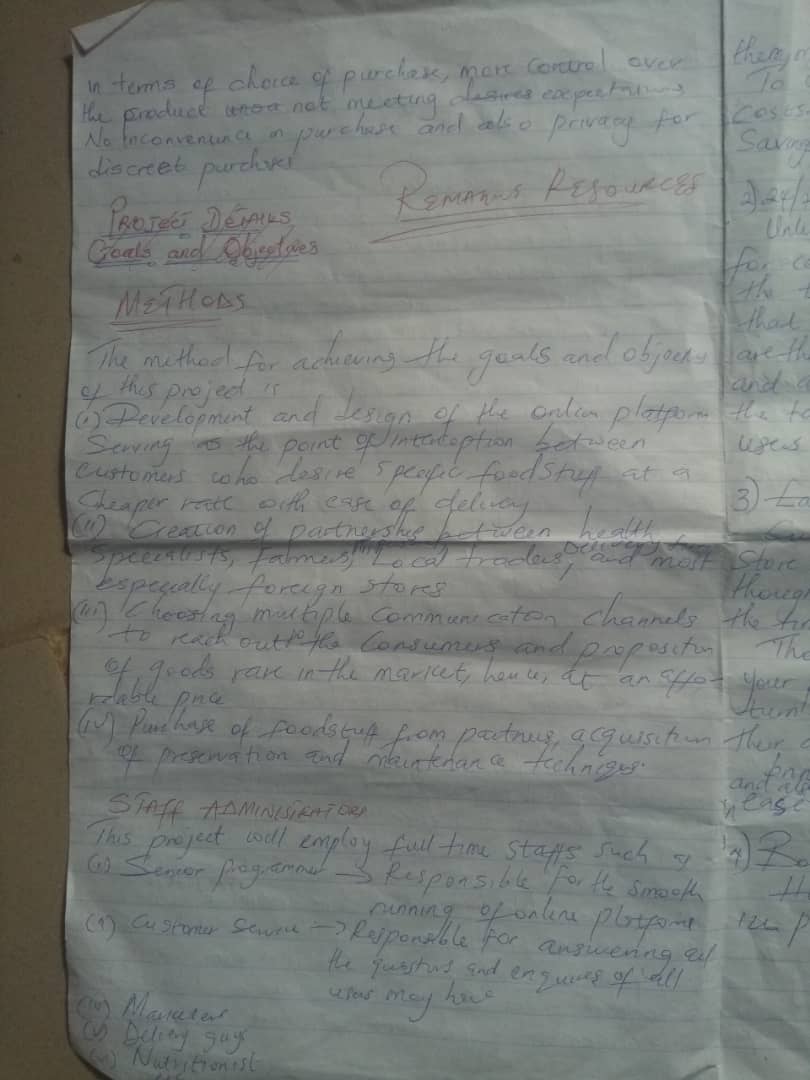 in terms of choice of purchase, more control over
the product not meeting desires expectations
No Inconvenience in purchase and also privacy for
discreet purchases
REMARKS RESOURCES
PROJECT DETAILS
Goals and Objectives
METHODS
The method for achieving the goals and objects
of this project is
(i) Development and design of the online platform
Serving as the point of interception between
Customers who desire specific foodstuff at a
Cheaper rate with ease of delivery
(ii) Creation of partnership between health
Specialists, farmers, Local traders, and most
especially foreign stores
(iii) Choosing multiple Communication channels
to reach out to the Consumers and proposition
of goods rare in the market, hence, at an affo-
rdable price
(iv) Purchase of foodstuff from partners, acquisition
of preservation and maintenance techniques.
STAFF ADMINISTRATORS
This project will employ full time staffs such as
(i) Senior programmer → Responsible for the smooth
running of online platform
Customer Service → Responsible for answering all
the questions and enquires of all
users may have
(iv) Marketers
(v) Delivery guys
Nutritionist
there
To
Costs
Saving
2) 24/
Unli
for co
the
that
are th
and
the
users
3)
Store
though
the
The
your
turn
their
and
ease
4)